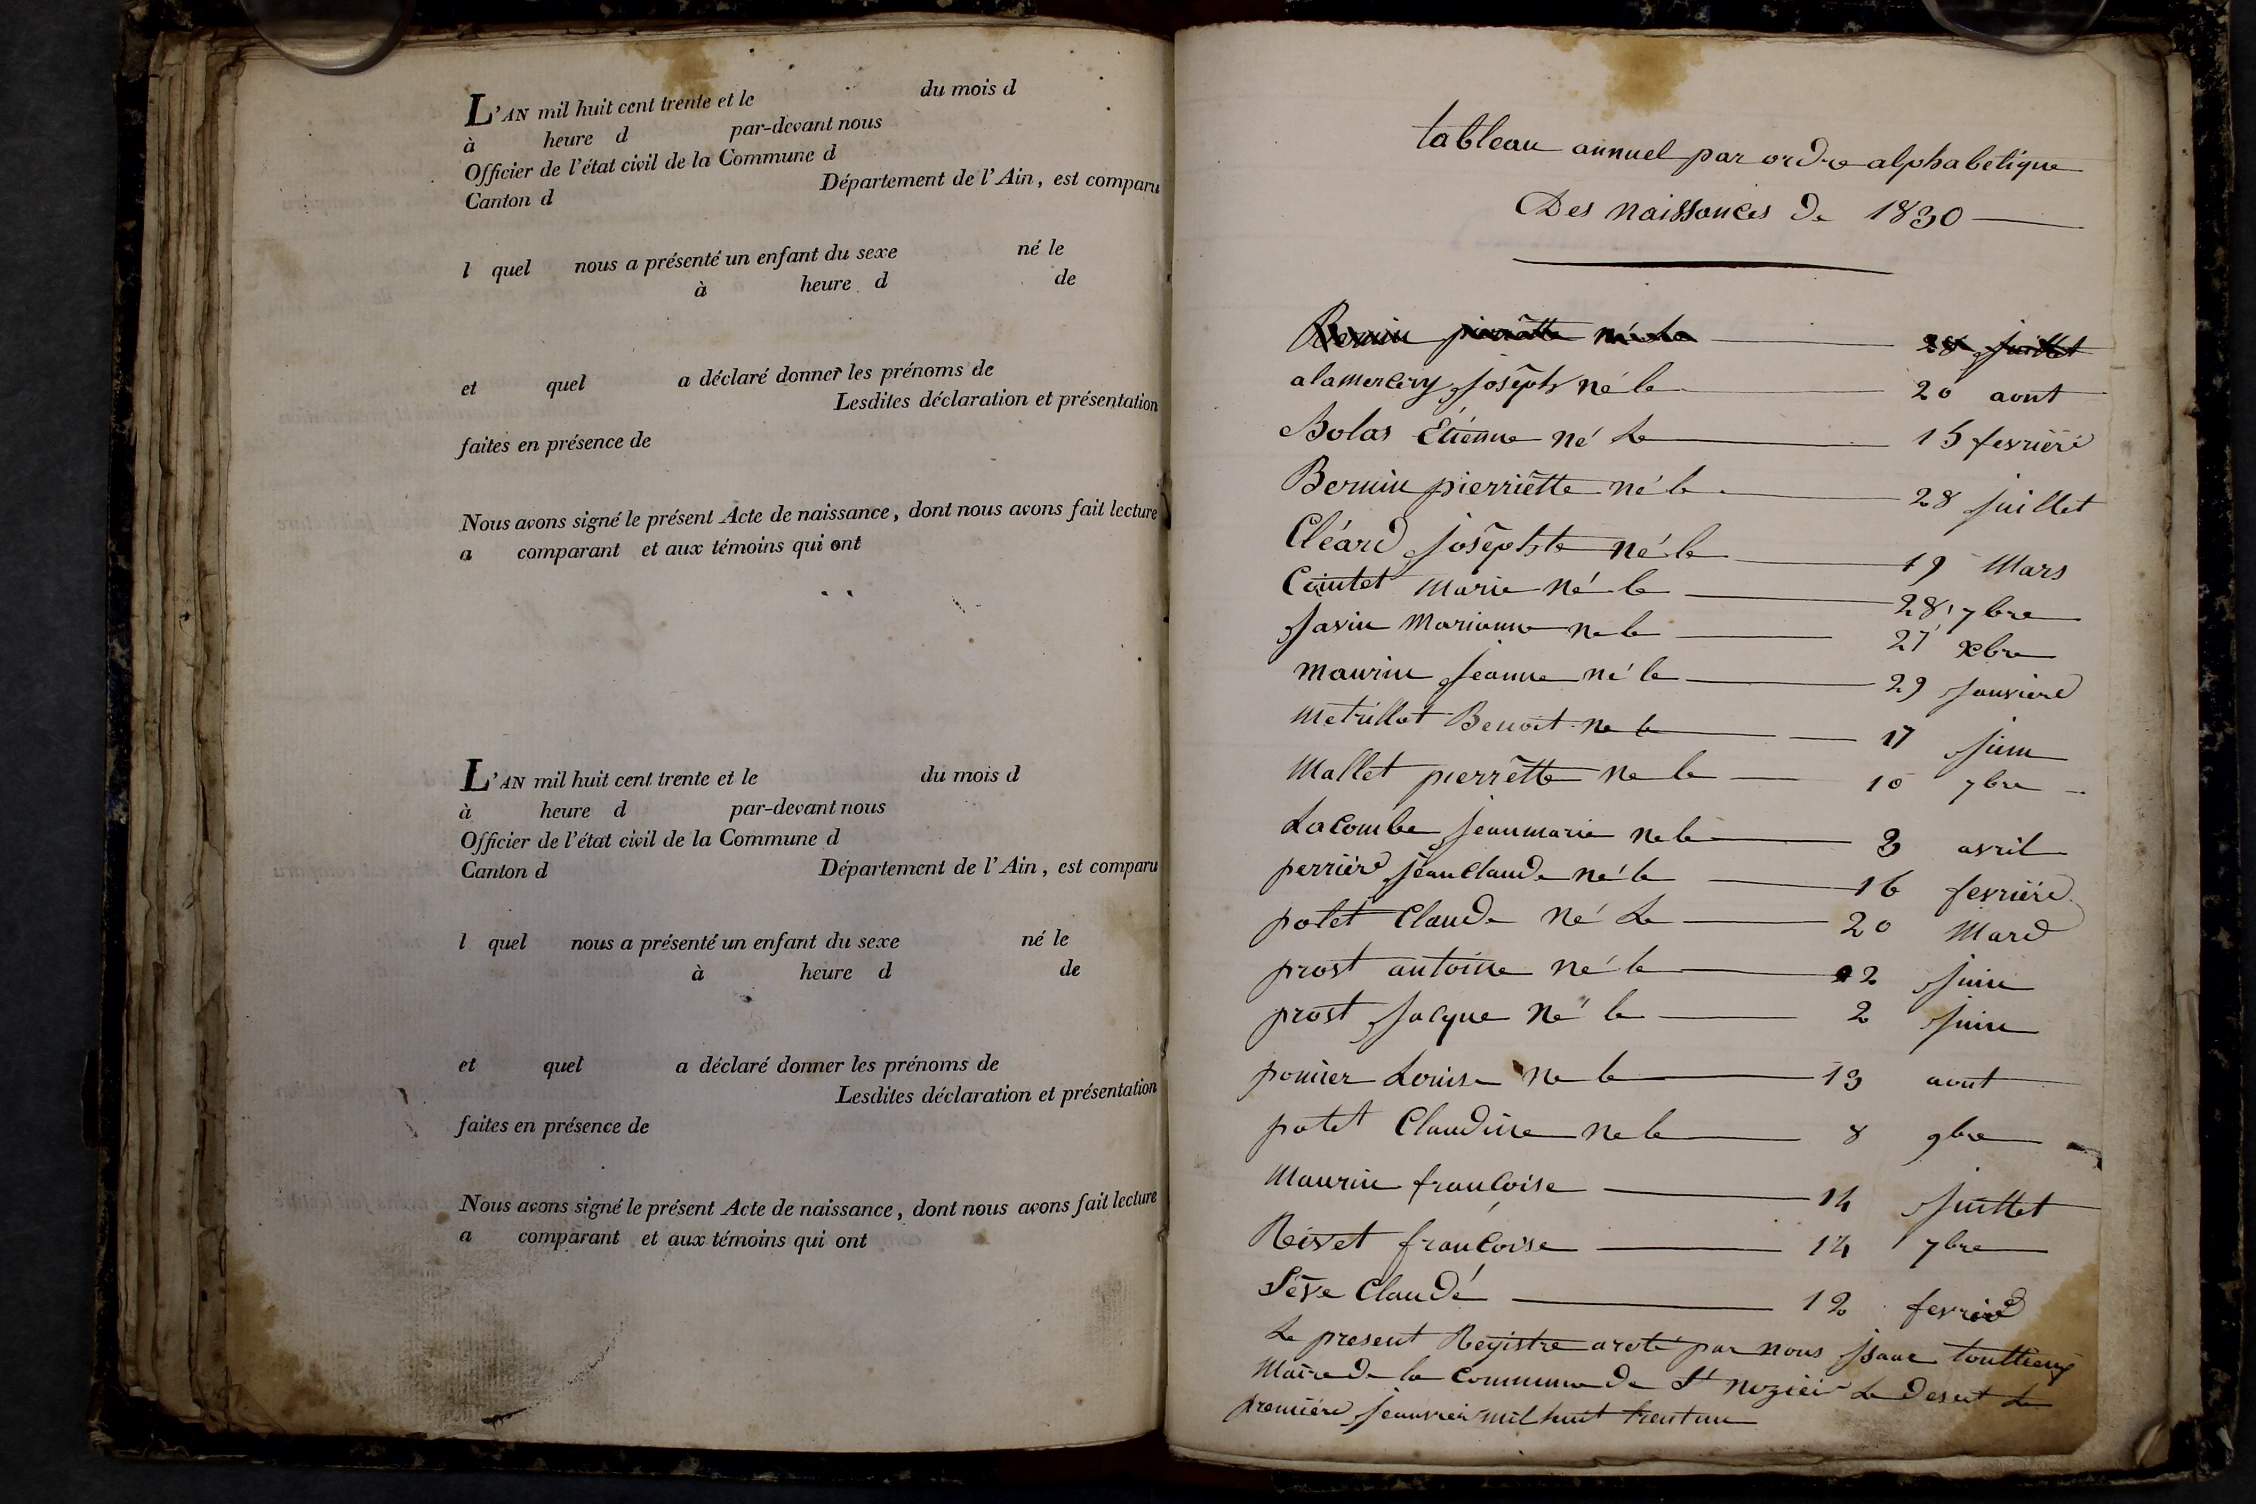 L'AN mil huit cent trente et le du mois d
à heure d par-devant nous
Officier de l'état civil de la Commune d
Canton d Département de l'Ain, est comparu
l quel nous a présenté un enfant du sexe né le
à heure d de
et quel a déclaré donner les prénoms de
Lesdites déclaration et présentation
faites en présence de
Nous avons signé le présent Acte de naissance, dont nous avons fait lecture
a comparant et aux témoins qui ont
L'AN mil huit cent trente et le du mois d
à heure d par-devant nous
Officier de l'état civil de la Commune d
Canton d Département de l'Ain, est comparu
l quel nous a présenté un enfant du sexe né le
à heure d de
et quel a déclaré donner les prénoms de
Lesdites déclaration et présentation
faites en présence de
Nous avons signé le présent Acte de naissance, dont nous avons fait lecture
a comparant et aux témoins qui ont
tableau annuel par ordre alphabetique
Des naissances de 1830
28 juillet
alamercery joseph né le 20 aout
Bolas Étienne né Le 15 fevrieré
Bernin pierriette né le 28 juillet
Cléard josephte né le 19 Mars
Cointet Marie né le 28 7bre
Javin Marianne ne le 27 xbre
Maurin jeanne né le 29 janvierd
Metrillot Benoit ne le 17 juin
Mallet pierrette ne le 10 7bre
Lacombe jeanmarie ne le 3 avril
perrierd jeanclaude né le 16 fevrierd
potet Claude né Le 20 Mard
prost antoine né le 2 juin
prost jacque né le 2 juin
ponier Louise ne le 13 aout
potet Claudine ne le 8 9bre
Maurin francoise 14 juillet
Reivet francoise 14 7bre
Séve Claudé 12 fevrierd
Le present Registre aroté par nous jsaac
Maire de la Commune de St nizier Le desert Le
premiérd jeanvier mil huit trent un